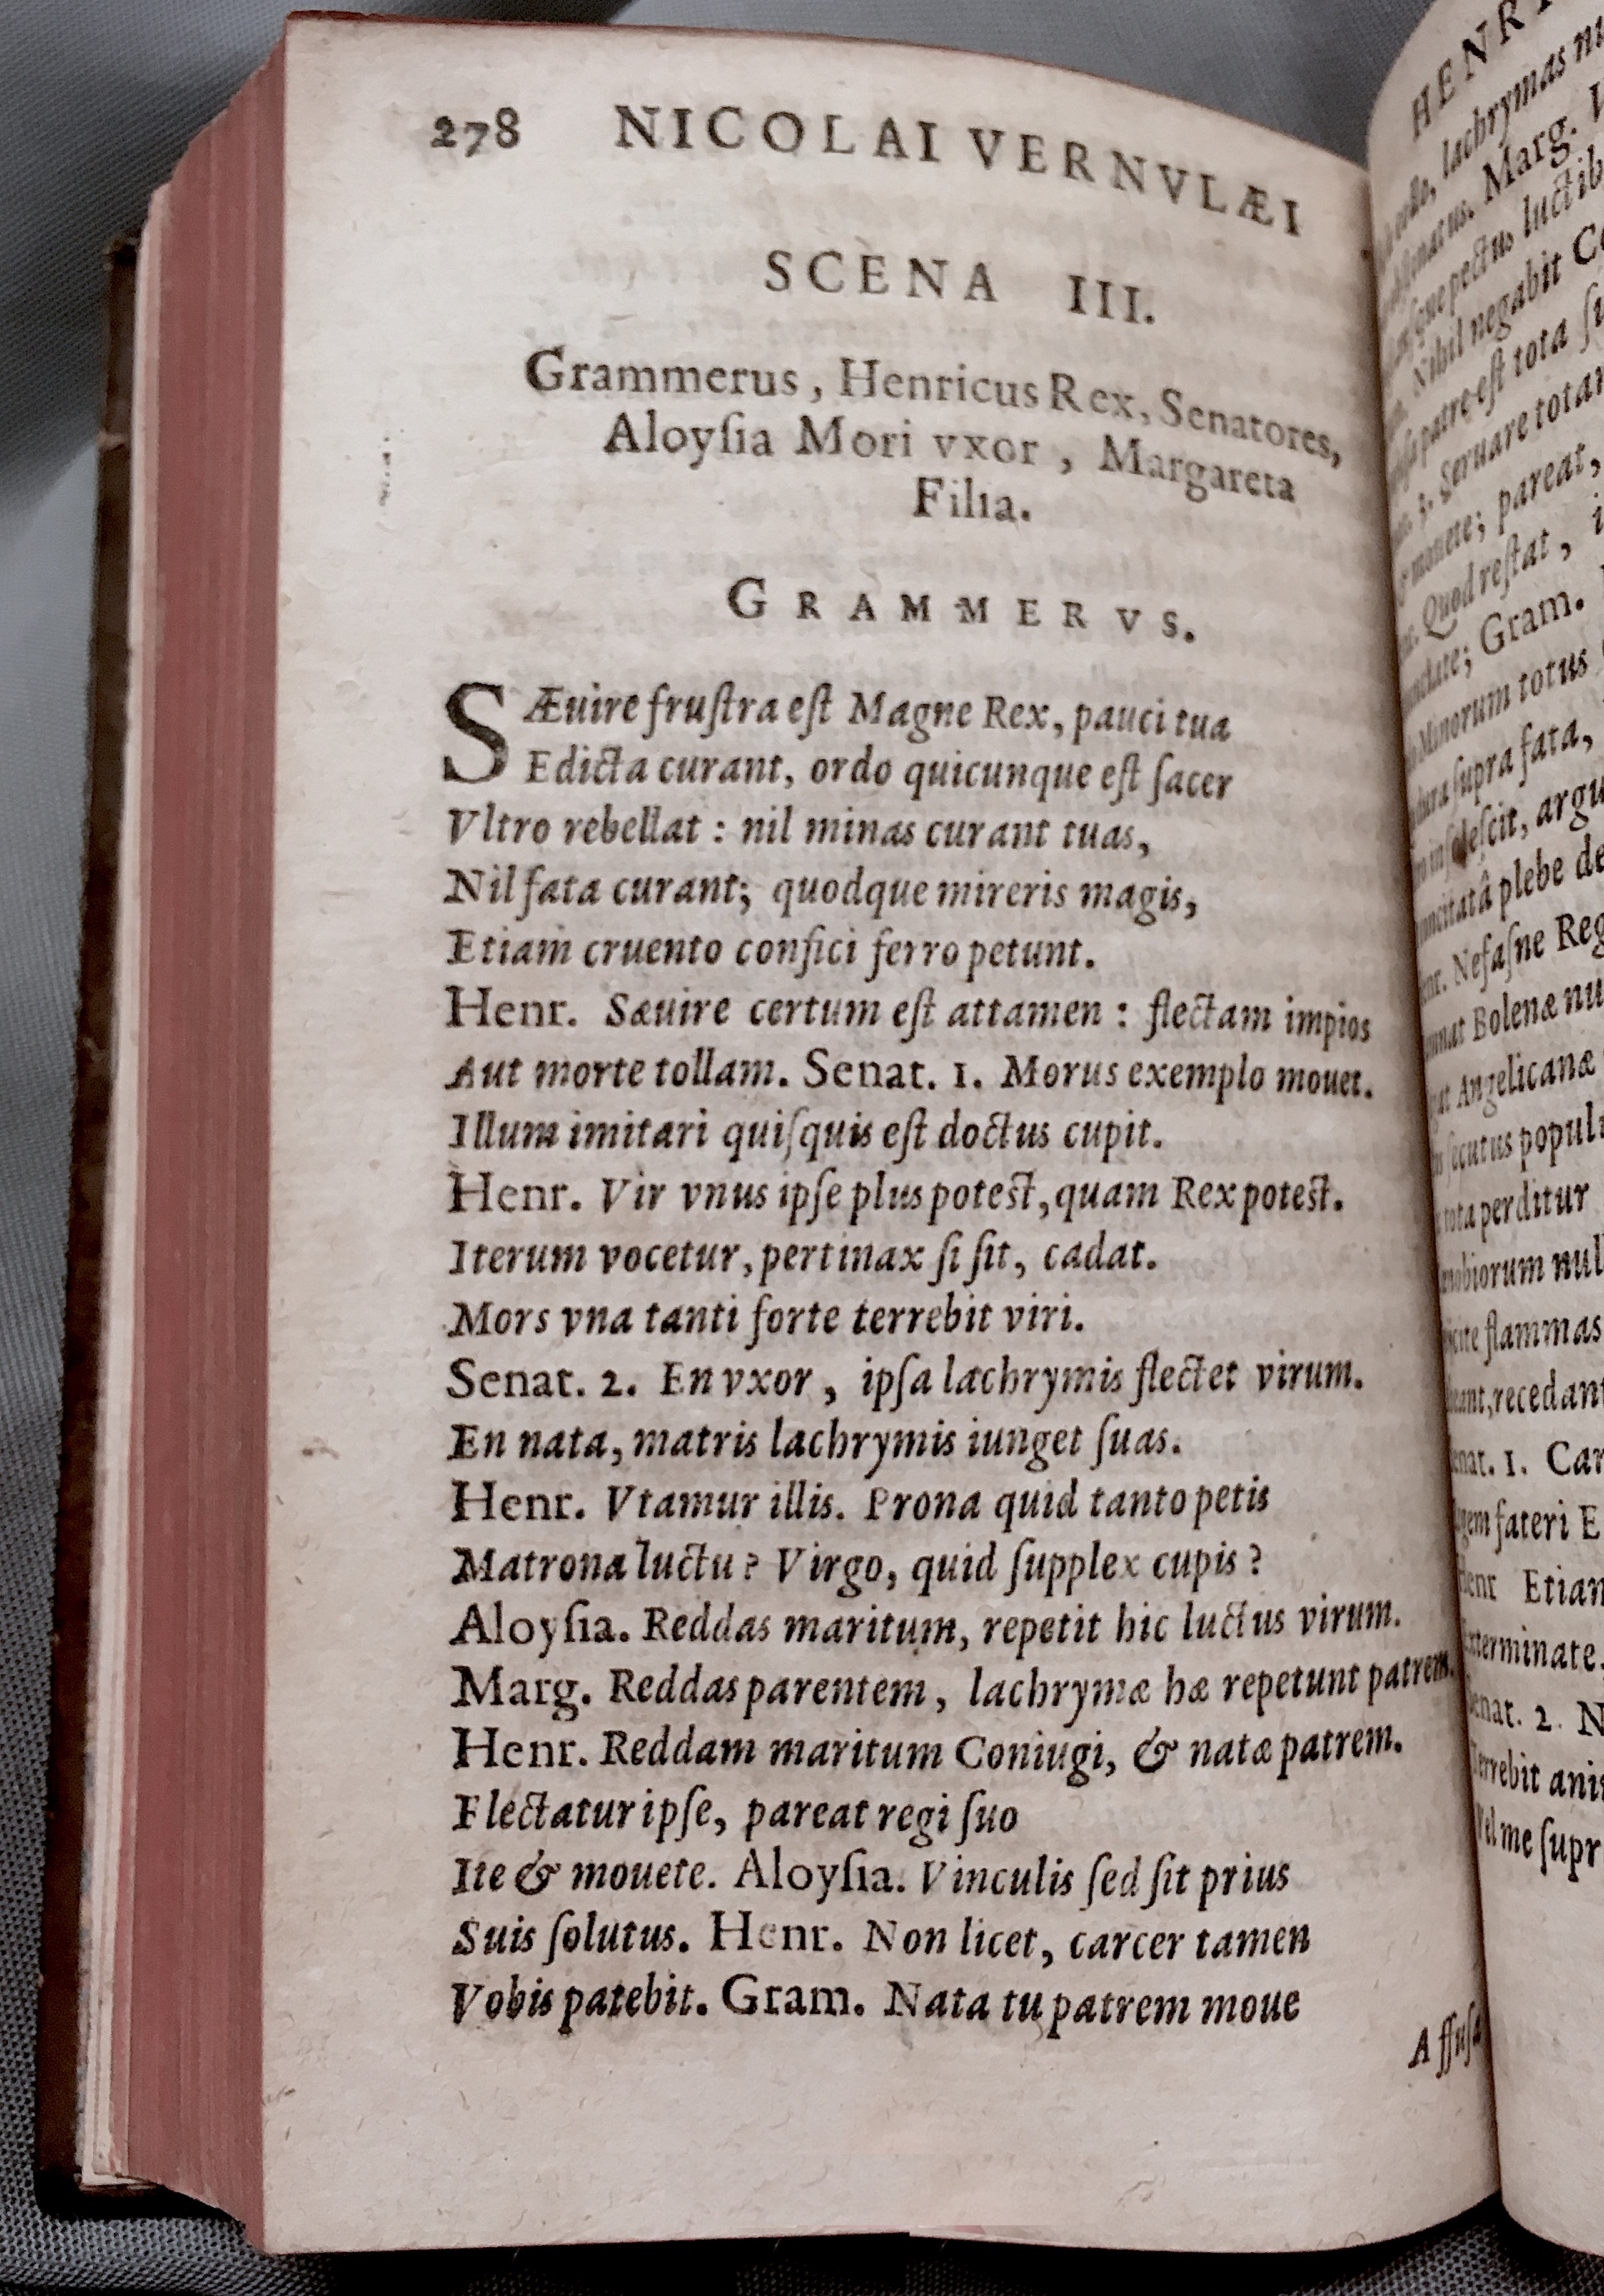 278 NICOLAI VERNVLÆI
SCENA III.
Grammerus, Henricus Rex, Senatores,
Aloyſia Mori vxor, Margareta
Filia.
GRAMMERVS.
SÆuire fruſtra eſt Magne Rex, pauci tua
Edicta curant, ordo quicunque eſt ſacer
Vltro rebellat : nil minas curant tuas,
Nil fata curant; quodque mireris magis,
Etiam cruento confici ferro petunt.
Henr. Sæuire certum eſt attamen : flectam impios
Aut morte tollam. Senat. 1. Morus exemplo mouet.
Illum imitari quiſquis eſt doctus cupit.
Henr. Vir vnus ipſe plus poteſt, quam Rex poteſt.
Iterum vocetur, pertinax ſi ſit, cadat.
Mors vna tanti forte terrebit viri.
Senat. 2. En vxor, ipſa lachrymis flectet virum.
En nata, matris lachrymis iunget ſuas.
Henr. Vtamur illis. Prona quid tanto petis
Matrona luctu? Virgo, quid ſupplex cupis?
Aloyſia. Reddas maritum, repetit hic luctus virum.
Marg. Reddas parentem, lachrymæ hæ repetunt patrem.
Henr. Reddam maritum Coniugi, & natæ patrem.
Flectatur ipſe, pareat regi ſuo
Ite & mouete. Aloyſia. Vinculis ſed ſit prius
Suis ſolutus. Henr. Non licet, carcer tamen
Vobis patebit. Gram. Nata tu patrem moue
lachrymas
Marg.
luctib
Nihil negabit
patre eſt tota
Seruare totam
mouete; pareat,
Quod reſtat,
Gram.
Minorum totus
ſupra fata,
plebe de
Nefaſne Reg
Bolenæ
Angelicanæ
populi
perditur
flammas
recedant
1. Car
fateri E
Etiam
2. N
me ſupr